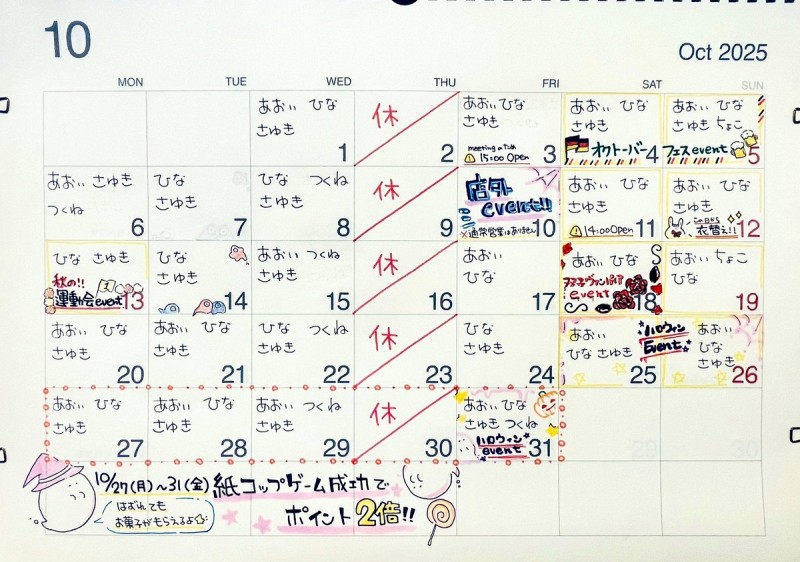 10
Oct 2025
MON TUE WED THU FRI SAT SUN
あおい ひな
さゆき
1
休
2
あおい ひな
さゆき
meetingのため
15:00 Open
3
あおい ひな
さゆき
オクトーバー
4
あおい ひな
さゆき ちょこ
フェスevent
5
あおい さゆき
つくね
6
ひな
さゆき
7
ひな つくね
さゆき
8
休
9
店外
event!!
※通常営業はありません
10
あおい ひな
さゆき
14:00 Open
11
あおい ひな
さゆき
この日から
衣替え!!
12
ひな さゆき
秋の!!
運動会event
13
ひな
さゆき
14
あおい つくね
さゆき
15
休
16
あおい
ひな
17
あおい ひな
さゆき
event
18
あおい ちょこ
ひな
19
あおい ひな
さゆき
20
あおい ひな
さゆき
21
ひな つくね
さゆき
22
休
23
ひな
さゆき
24
あおい
ひな さゆき
25
ハロウィン
Event
あおい
ひな
さゆき
26
あおい ひな
さゆき
27
あおい ひな
さゆき
28
あおい つくね
さゆき
29
休
30
あおい ひな
さゆき つくね
ハロウィン
event
31
10/27(月)~31(金) 紙コップゲーム成功で
ポイント2倍!!
はずれても
お菓子がもらえるよ